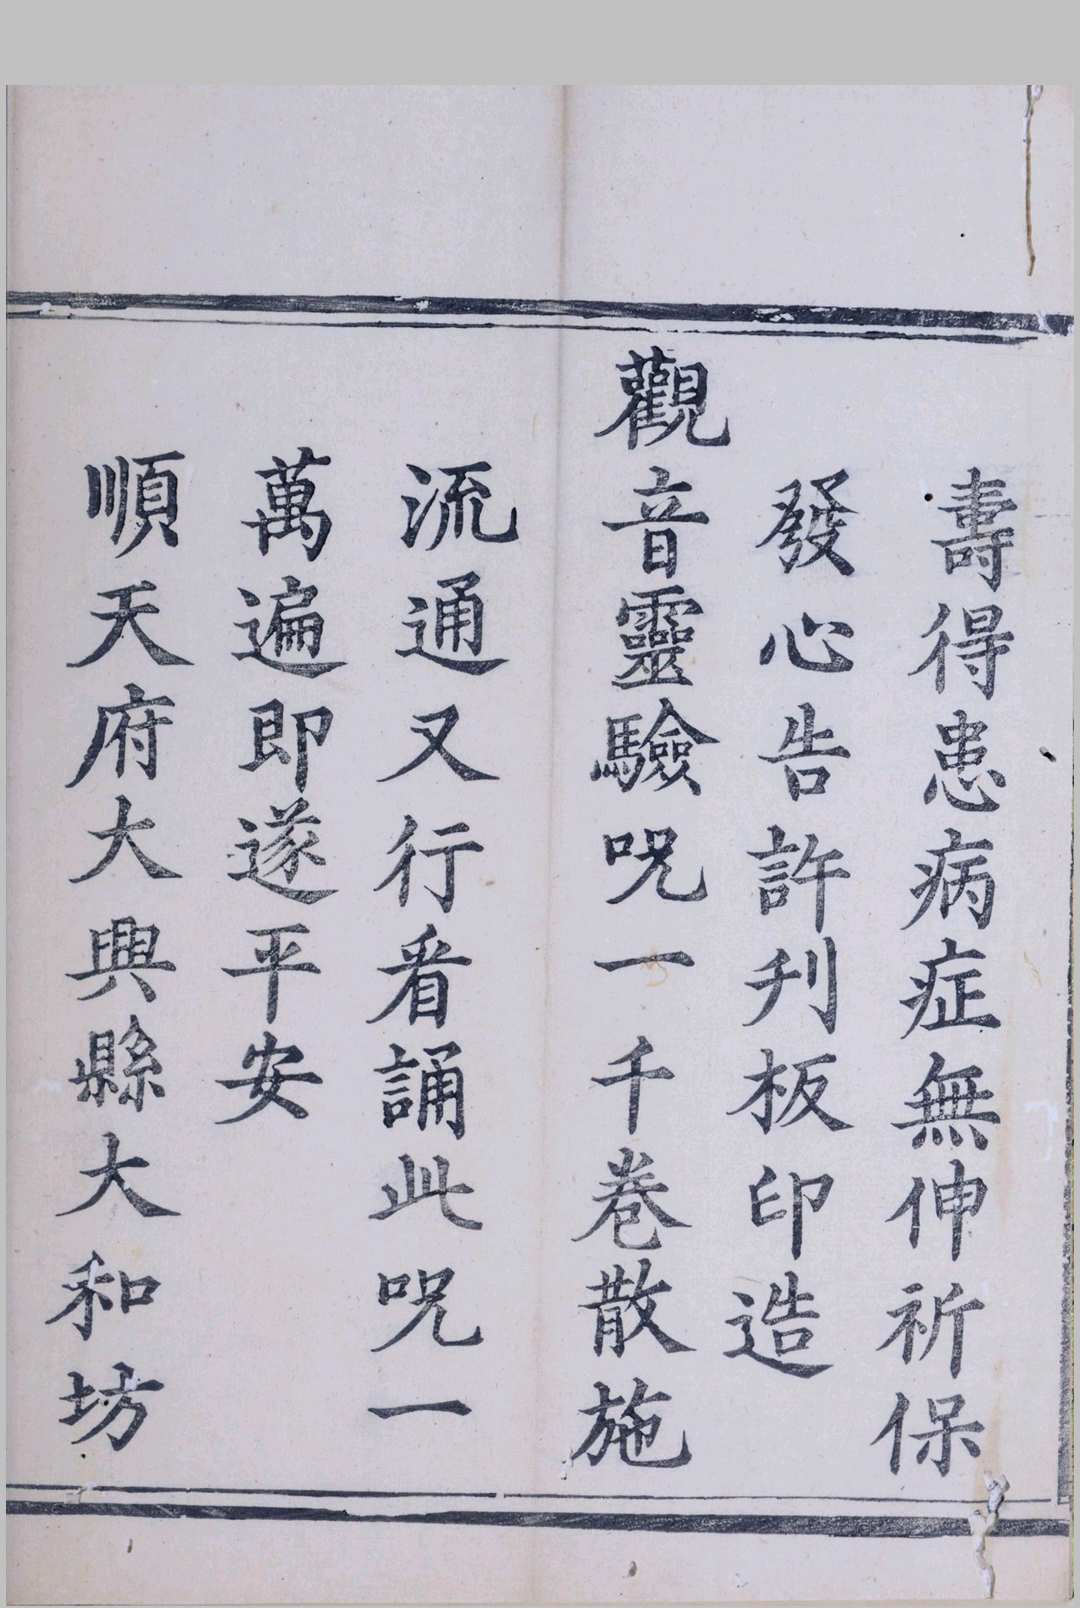 壽得患病症無伸祈保
發心告許刋板印造
觀音靈驗呪一千卷散施
流通又行看誦此呪一
萬遍即遂平安
順天府大興縣大和坊